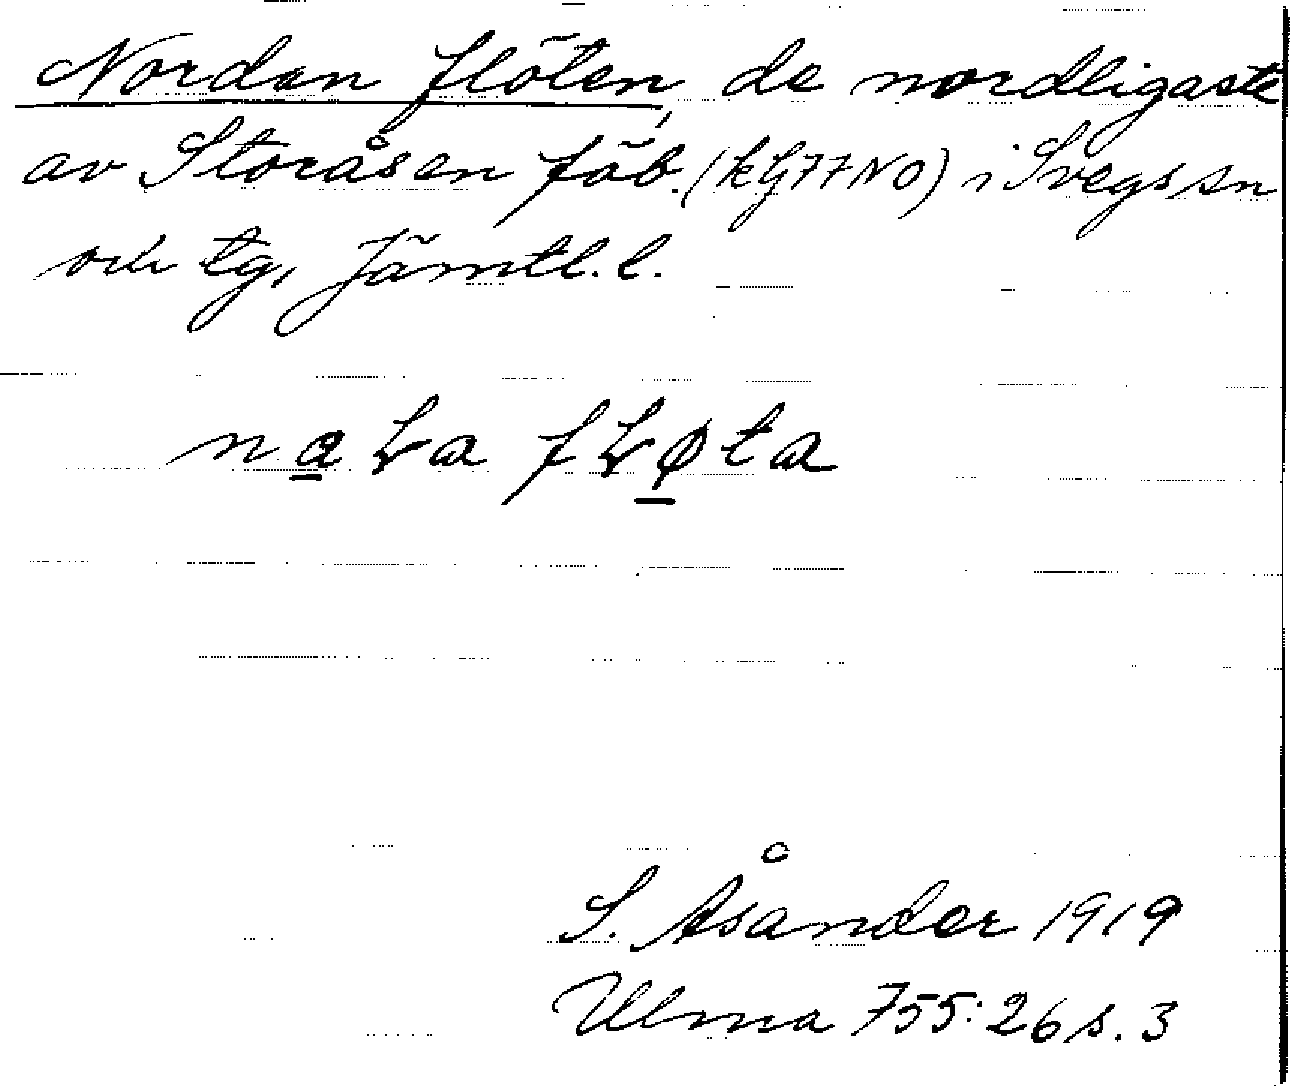 Nordan flöten, de nordligaste
av Storåsen fäb. (kG77NO) i Svegs sn
och tg, Jämtl. l.
naLa fLøta
S. Åsander 1919
Ulma 755:26 s. 3